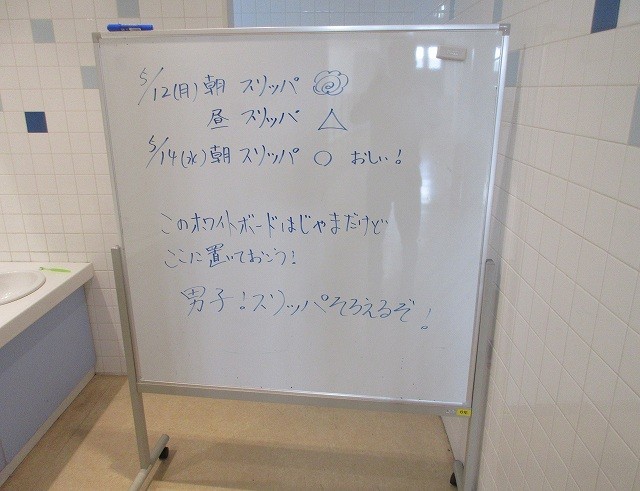 5/12(月)朝 スリッパ
昼 スリッパ △
5/14(水)朝 スリッパ ○ おしい!
このホワイトボードはじゃまだけど
ここに置いておこう!
男子!スリッパそろえるぞ!